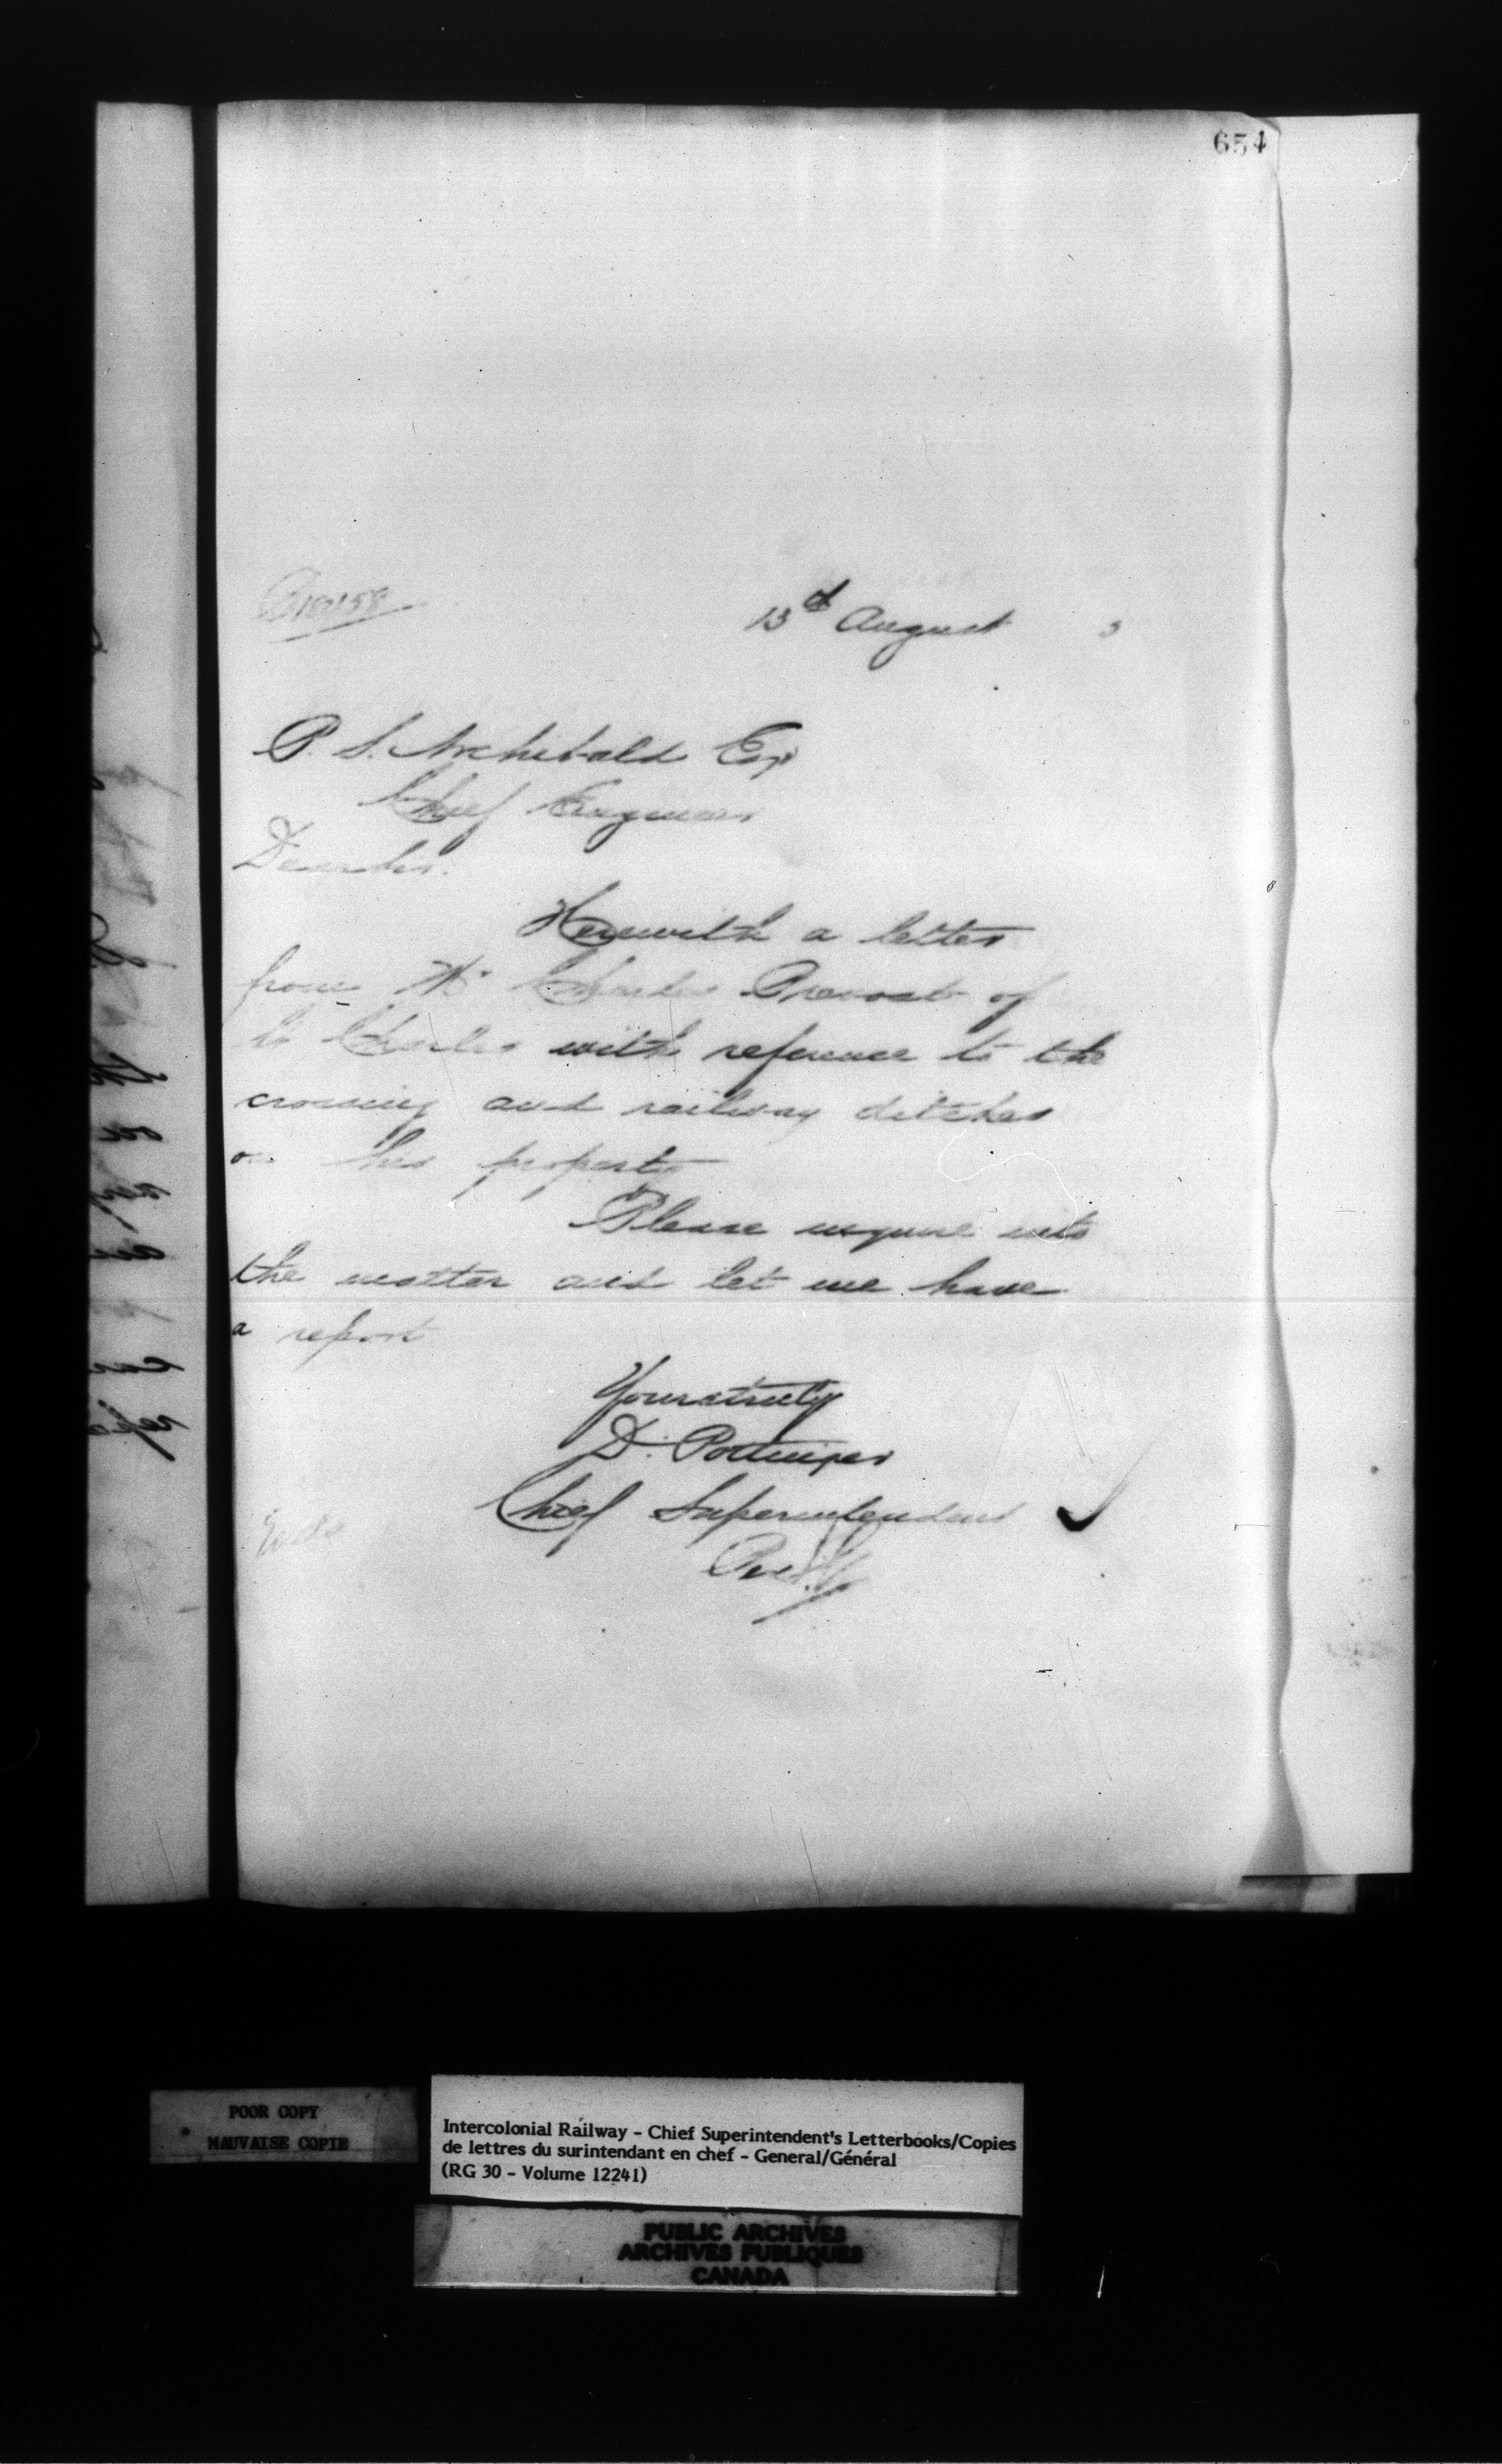 654
13th August 3
P. S. Archibald Esq
Chief Engineer
Dear Sir.
Herewith a letter
from Mr Charles Prevost of
St Charles with reference to the
crossing and railway ditches
on his property
Please inquire into
the matter and let me have
a report
Yours truly
D. Pottinger
Chief Superintendent
POOR COPY
MAUVAISE COPIE
Intercolonial Railway - Chief Superintendent's Letterbooks/Copies
de lettres du surintendant en chef - General/Général
(RG 30 - Volume 12241)
PUBLIC ARCHIVES
ARCHIVES PUBLIQUES
CANADA